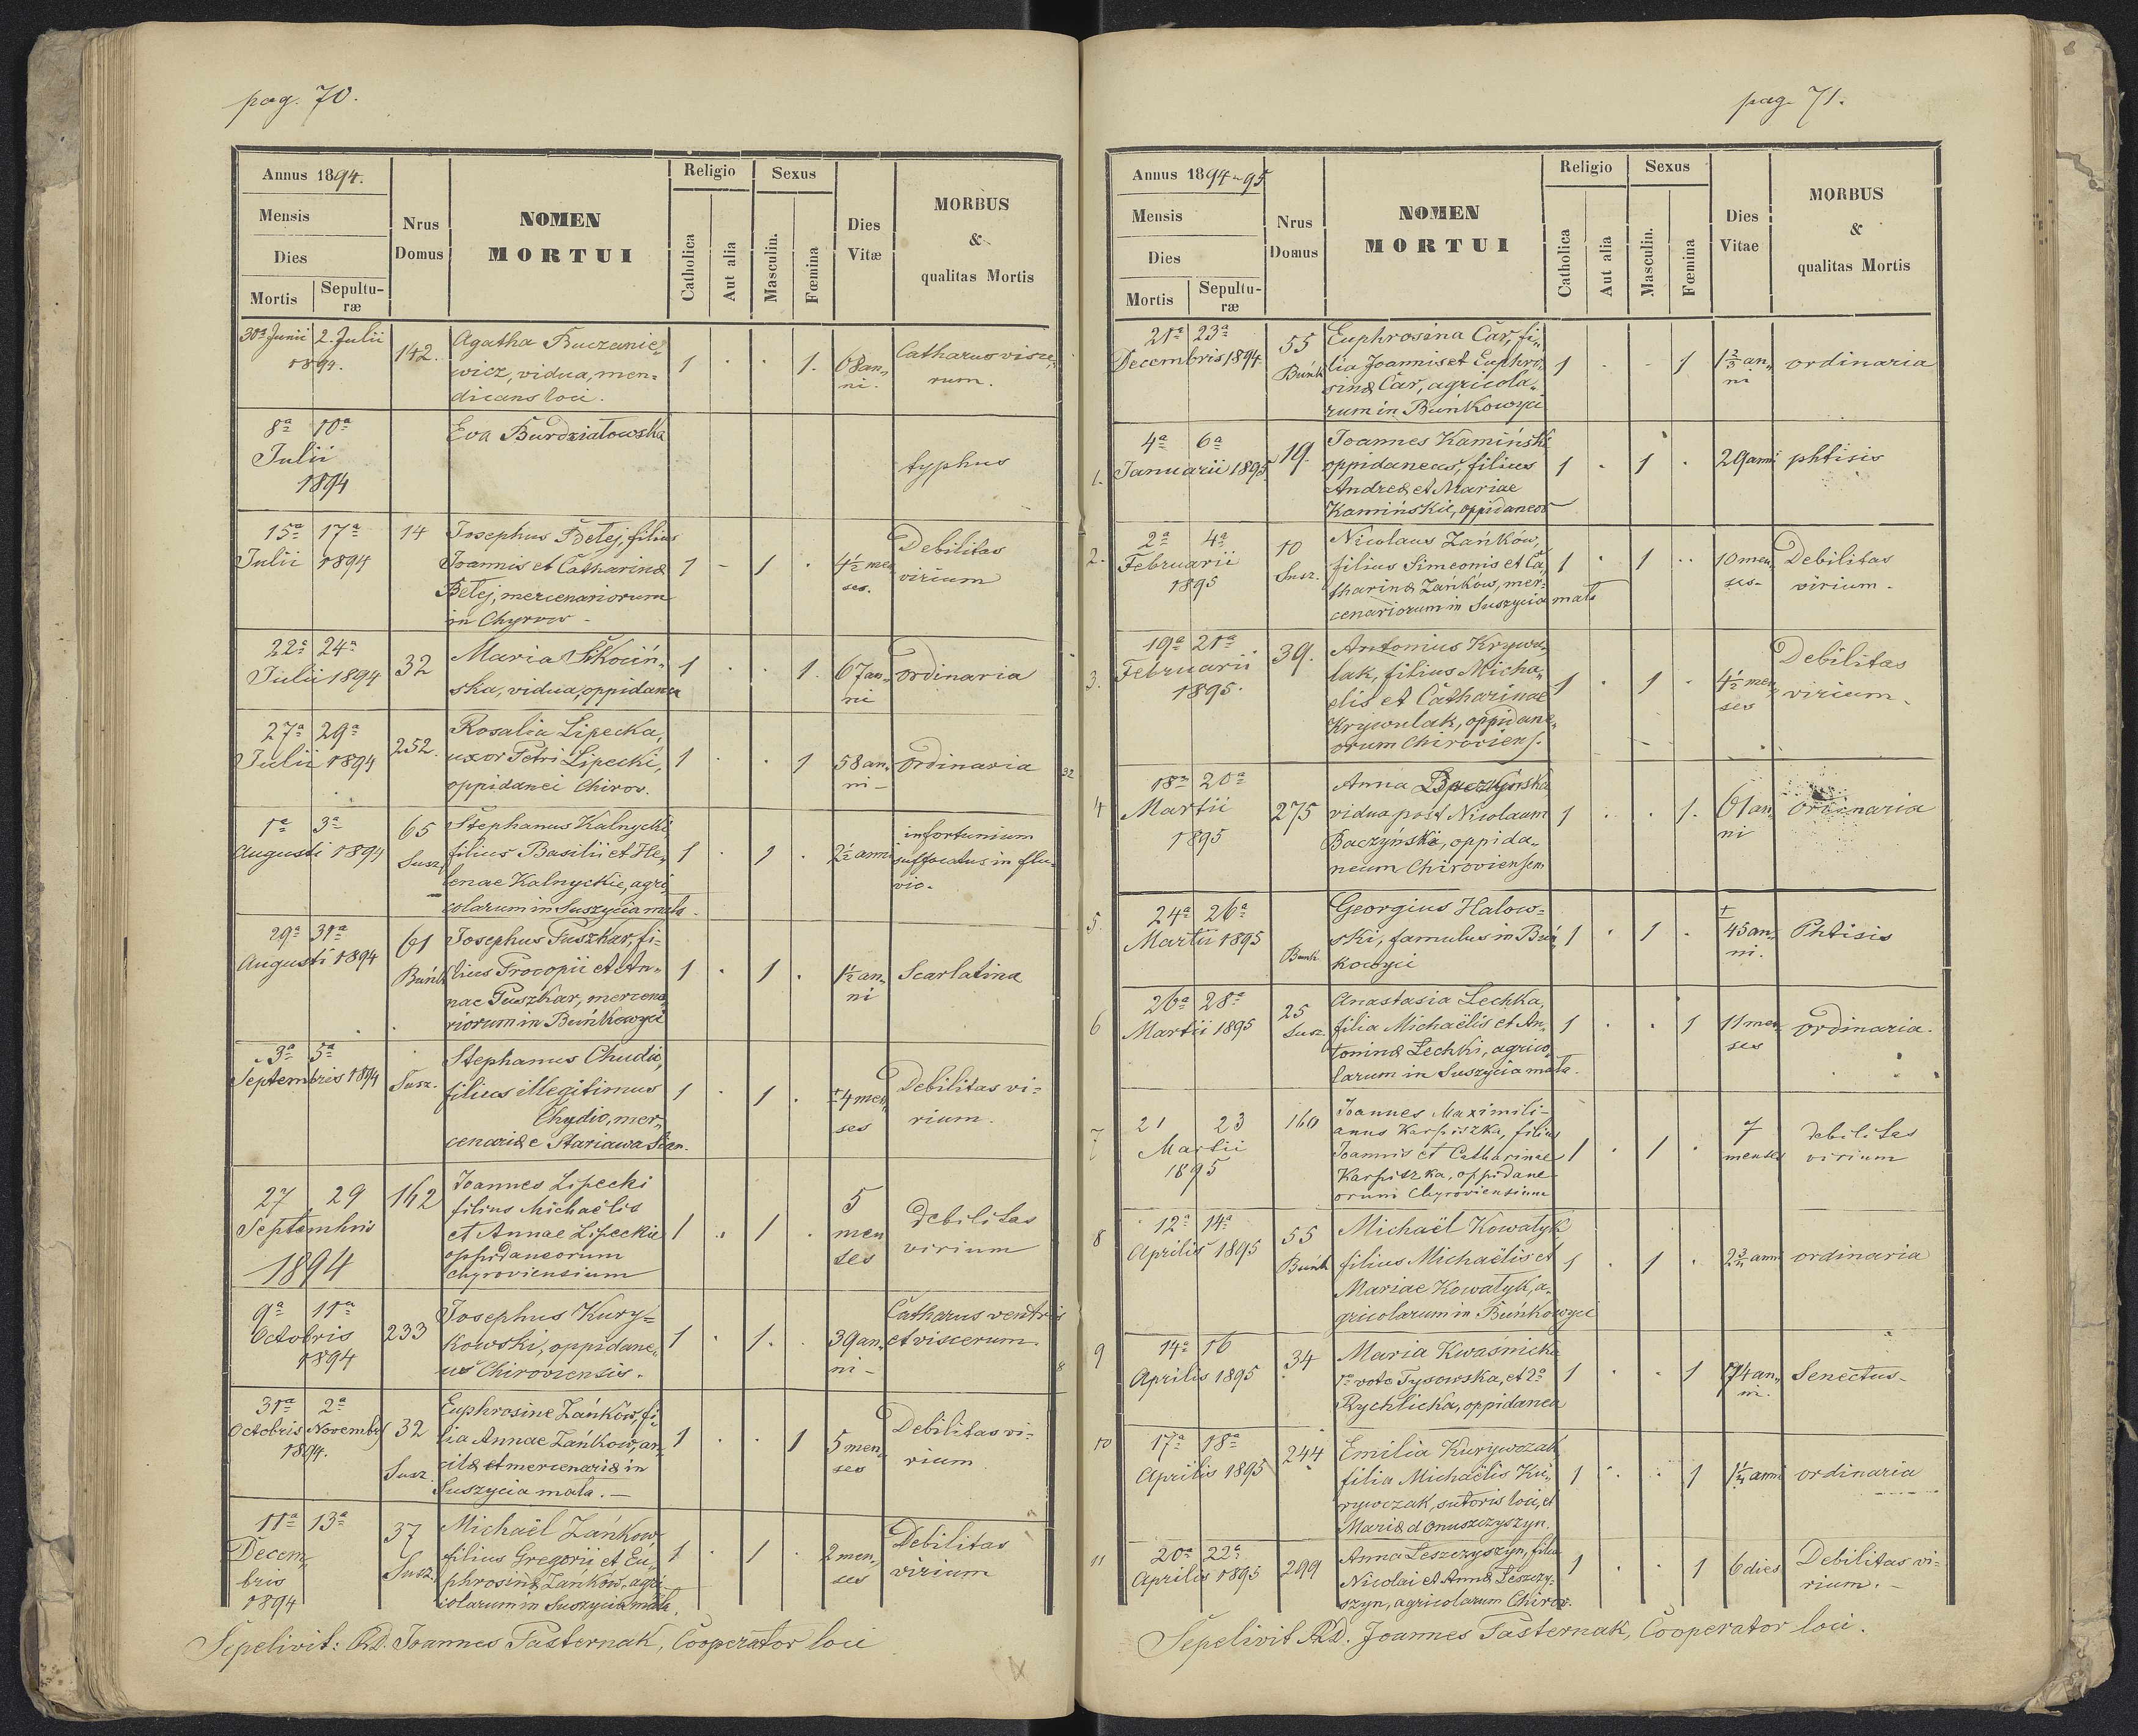 pag. 70.
Annus 1894.
Mensis
Dies
Mortis
Sepultu-
ræ
Nrus
Domus
NOMEN
MORTUI
Religio
Catholica
Aut alia
Sexus
Masculin.
Fœmina
Dies
Vitæ
MORBUS
&
qualitas Mortis
30ª Junii 2. Julii
1894.
142.
Agatha Buczanie„
wicz, vidua, men=
dicans loci.
1 . . 1.
68 an„
ni.
Catharus visce„
rum.
8ª 10ª
Julii
1894
Eva Burdziatowska
typhus
15ª 17ª
Julii 1894
14
Josephus Betej, filius
Joannis et Catharinæ
Betej, mercenariorum
in Chyrow -
1 - 1 .
4½ men
ses.
Debilitas
virium
22ª 24ª
Julii 1894
32
Maria Skociń„
ska, vidua, oppidana
1 . . 1.
67 an„
ni
ordinaria
27ª 29ª
Julii 1894
252.
Rosalia Lipecka,
uxor Petri Lipecki,
oppidanei Chirov.
1 . . 1
58 an„
ni -
ordinaria
1ª 3ª
Augusti 1894
65
Susz.
Stephanus Kalnycki
filius Basilii et He„
lenae Kalnyckie, agri
colarum in Suszycia mała.
1 . 1 .
2½ anni
infortunium
suffocatus in flu„
vio.
29ª 31ª
Augusti 1894
61
Buńk
Josephus Puszkar, fi-
lius Procopii et An„
nae Puszkar, mercena„
riorum in Buńkowyci
1 . 1 .
1½ an„
ni
Scarlatina
3ª 5ª
Septembris 1894
Susz.
Stephanus Chudio,
filius illegitimus
Chydio, mer„
cenariæ e Stariawa Sian.
1 . 1 .
± 4 men„
ses
Debilitas vi=
rium.
27 29
Septembris
1894
162
Joannes Lipecki
filius Michaëlis
et Annae Lipeckie
oppidaneorum
chyroviensium
1 . 1 .
5
men
ses
debilitas
virium
9ª 11ª
Octobris
1894
233
Josephus Kury=
kowski, oppidane„
us Chiroviensis.
1 . 1. .
39 an„
ni -
Catharus ventris
et viscerum.
31ª 2ª
Octobris Novembr
1894.
32
Susz.
Euphrosine Zańków, fi
lia Annae Zańkow, an„
cilæ et mercenariæ in
Suszycia mała. -
1 . . 1
5 men„
ses
Debilitas vi-
rium
11ª 13ª
Decem„
bris
1894
37
Susz.
Michaël Zańkow,
filius Gregorii et Eu„
phrosinæ Zańków, agri-
colarum in Suszycia mała.
1 . 1 .
2 men„
ses
Debilitas
virium
Sepelivit: RD. Joannes Pasternak, Cooperator loci
pag. 71.
Annus 1894-95
Mensis
Dies
Mortis
Sepultu-
ræ
Nrus
Domus
NOMEN
MORTUI
Religio
Catholica
Aut alia
Sexus
Masculin.
Fœmina
Dies
Vitae
MORBUS
&
qualitas Mortis
21ª 23ª
Decembris 1894
55
Buńk
Euphrosina Car, fi„
lia Joannis et Euphro„
sinæ Car, agricola„
rum in Buńkowyci
1 . . 1
1⅔ an„
ni
ordinaria
1.
4ª 6ª
Januarii 1895
19.
Joannes Kamiński
oppidaneus, filius
Andreæ et Mariae
Kamińskie, oppidaneor
1 . 1 .
29 anni
phtisis
2.
2ª 4ª
Februarii
1895
10
Susz.
Nicolaus Zańków,
filius Simeonis et Ca„
tharinæ Zańków, mer-
cenariorum in Suszycia mała
1 . 1 ..
10 men„
ses-
Debilitas
virium.
3.
19ª 21ª
Februarii
1895.
39.
Antonius Krywu„
lak, filius Micha„
elis et Catharinae
Krywulak, oppidane„
orum Chiroviens.
1 . 1 .
4½ men„
ses
Debilitas
virium.
4
18ª 20ª
Martii
1895
275
Anna Baczyńska
vidua post Nicolaum
Baczyński, oppida„
neum Chiroviensem
1 . . 1.
61 an„
ni
ordinaria
5.
24ª 26ª
Martii 1895
Buńk.
Georgius Halow=
ski, famulus in Buń
kowyci
1 . 1 .
±
45 an„
ni.
Phtisis
6
26ª 28ª
Martii 1895
25
Susz.
Anastasia Lechka,
filia Michaëlis et An„
toninæ Lechki, agrico„
larum in Suszycia mała.
1 . . 1
11 men
ses
ordinaria.
7
21 23
Martii
1895
160
Joannes Maximili-
anus Karpiszka, filius
Joannis et Catharinae
Karpiszka, oppidane
orum Chyroviensium
1 . 1 .
7
menses
debilitas
virium
8
12ª 14ª
Aprilis 1895
55
Buńk
Michaël Kowatyk,
filius Michaëlis et
Mariae Kowatyk, a-
gricolarum in Buńkowyci
1 . 1 .
anni
ordinaria
9
14ª 16
Aprilis 1895
34
Maria Kwaśnicka
1º voto Tysowska, et 2º
Rychlicka, oppidanea
1 . . 1
74 an„
ni.
Senectus-
10
17ª 18ª
Aprilis 1895
244
Emilia Kurywczak,
filia Michaëlis Ku„
rywczak, sutoris loci, et
Mariæ d Onuszczyszyn.
1 . . 1
anni
ordinaria
11
20ª 22ª
Aprilis 1895
299
Anna Leszczyszyn, filia
Nicolai et Annæ Leszczy=
szyn, agricolarum Chirov.
1 . . 1
6 dies
Debilitas vi-
rium. -
Sepelivit RD. Joannes Pasternak, Cooperator loci.